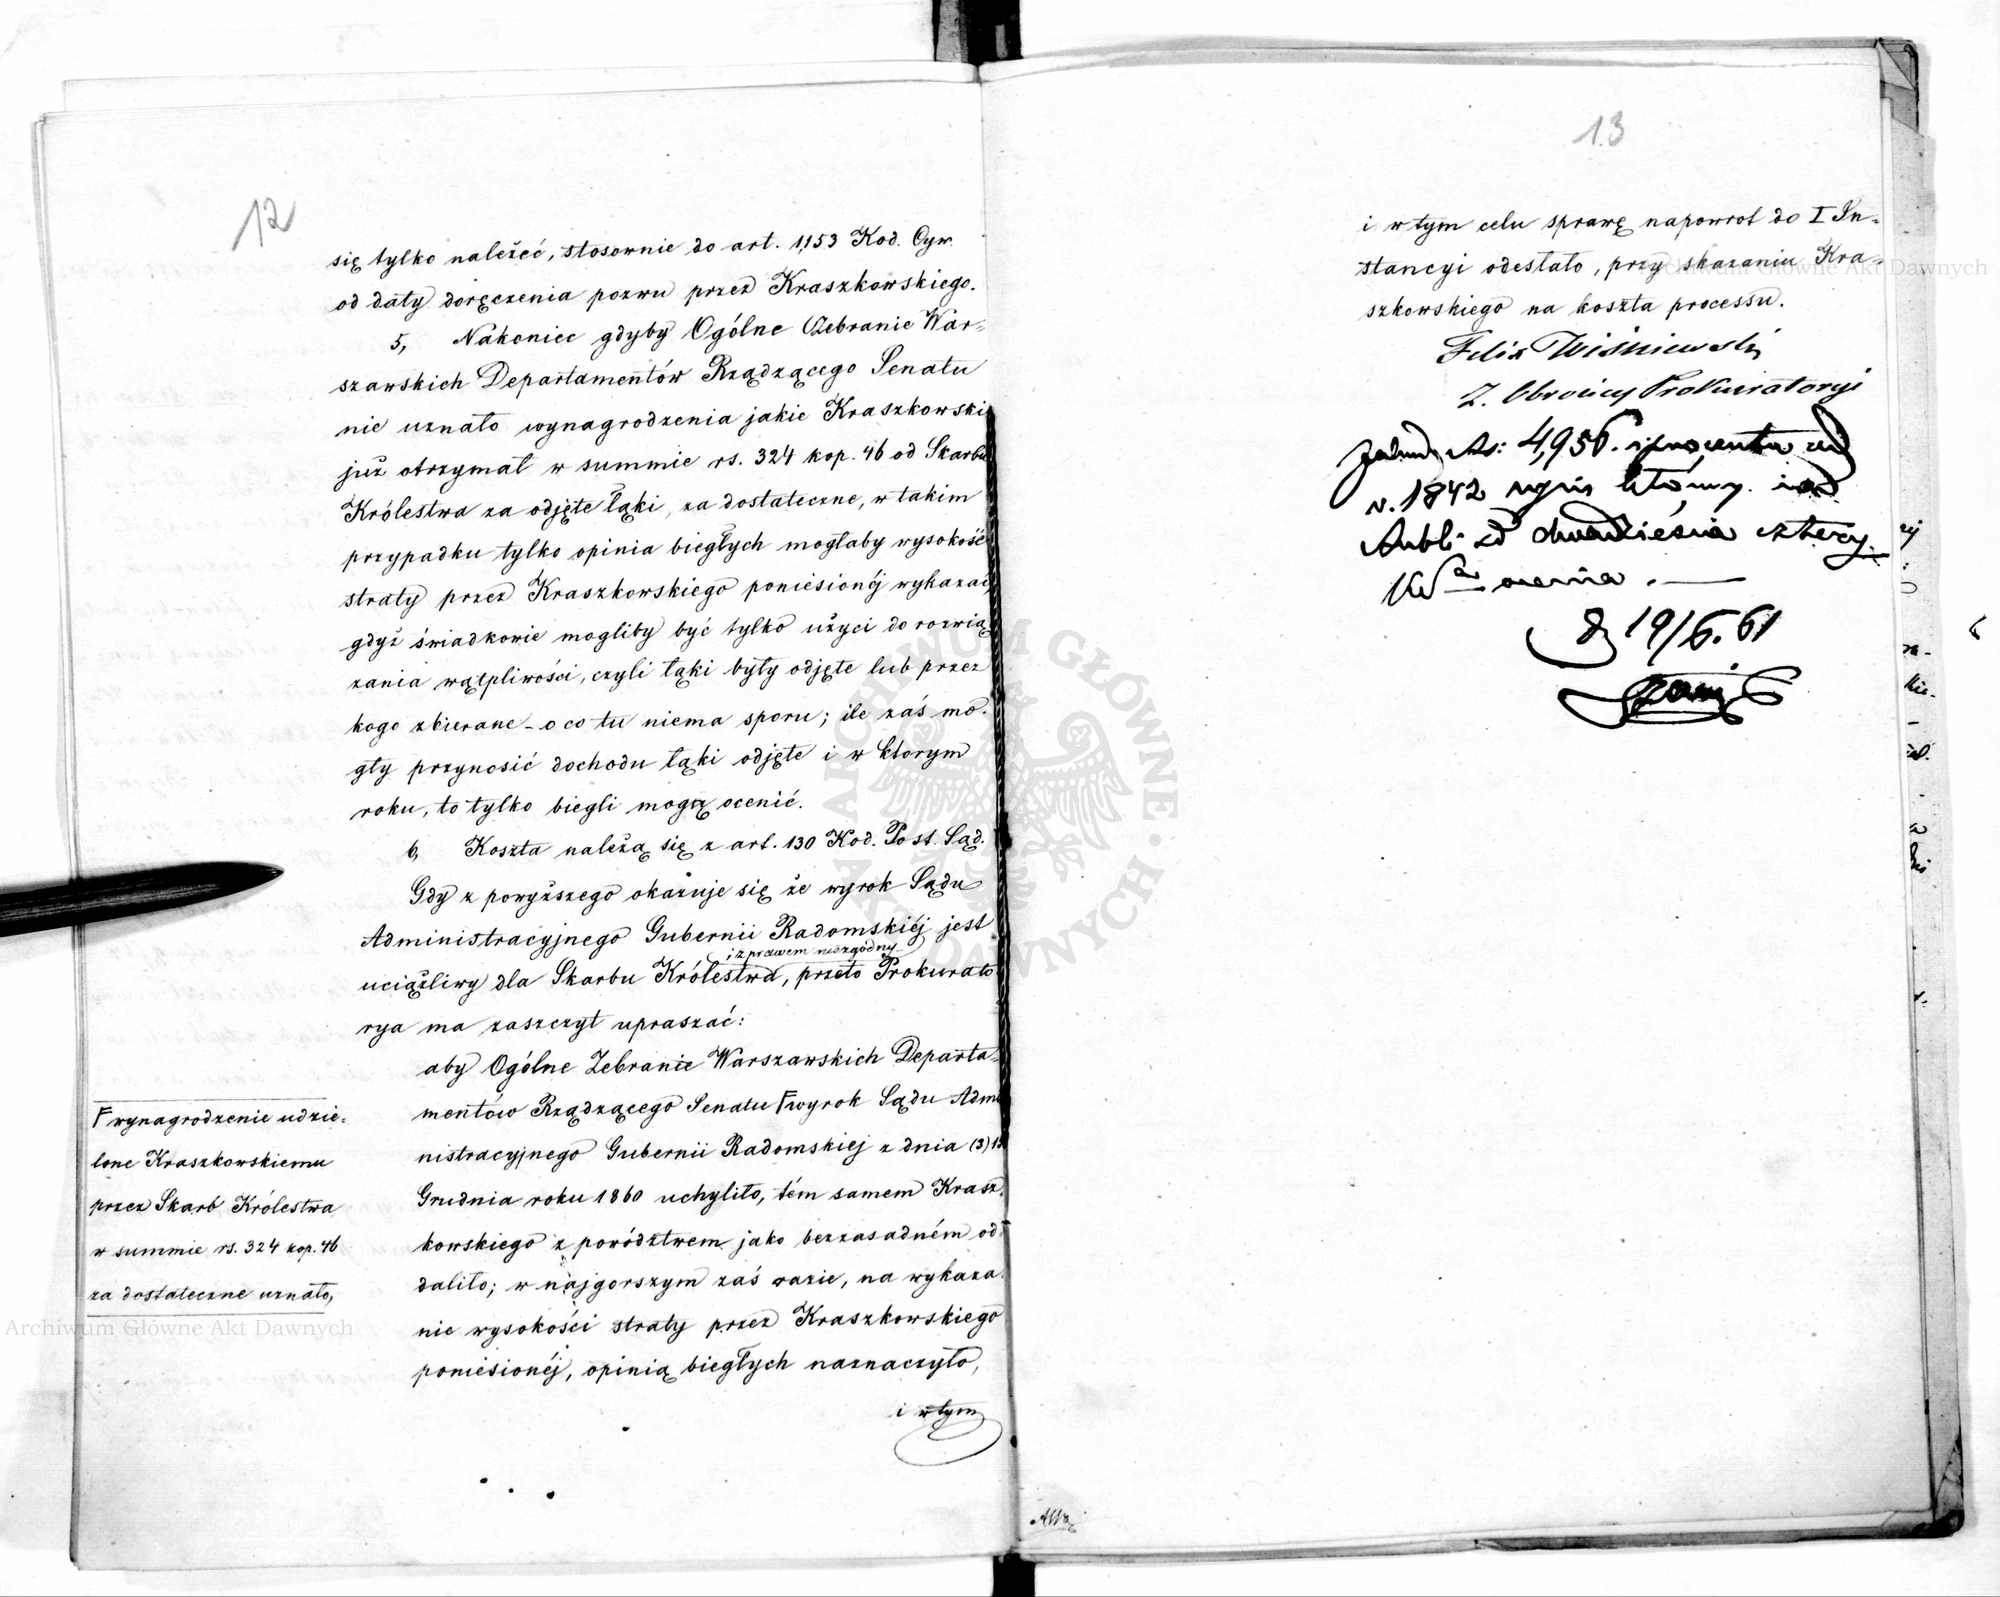 12
się tylko należeć, stosownie do art. 1153 Kod. Cyw.
od daty doręczenia pozwu przez Kraszkowskiego.
5, Nakoniec gdyby Ogólne Zebranie War-
szawskich Departamentów Rządzącego Senatu
nie uznało wynagrodzenia jakie Kraszkowski
już otrzymał w summie rs. 324 kop. 46 od Skarbu
Królestwa za odjęte łąki, za dostateczne, w takim
przypadku tylko opinia biegłych mogłaby wysokość
straty przez Kraszkowskiego poniesionéj wykazać,
gdyż świadkowie mogliby być tylko użyci do rozwią
zania wątpliwości, czyli łąki były odjęte lub przez
kogo zbierane – o co tu niema sporu; ile zaś mo-
gły przynosić dochodu łąki odjęte i w którym
roku, to tylko biegli mogą ocenić.
6, Koszta należą się z art. 130 Kod. Post. Sąd.
Gdy z powyższego okazuje się że wyrok Sądu
Administracyjnego Gubernii Radomskiéj jest
i z prawem niezgodny
uciążliwy dla Skarbu Królestwa, przeto Prokurato
rya ma zaszczyt upraszać:
aby Ogólne Zebranie Warszawskich Departa-
mentów Rządzącego Senatu F wyrok Sądu Admi
nistracyjnego Gubernii Radomskiej z dnia (3) 15
Grudnia roku 1860 uchyliło, tém samem Krasz-
kowskiego z powództwem jako bezzasadném od-
daliło; w najgorszym zaś razie, na wykaza-
nie wysokości straty przez Kraszkowskiego
poniesionéj, opinią biegłych naznaczyło,
i w tym
F wynagrodzenie udzie-
lone Kraszkowskiemu
przez Skarb Królestwa
w summie rs. 324 kop. 46
za dostateczne uznało,
13
i w tym celu sprawę napowrót do I In-
stancyi odesłało, przy skazaniu Kra-
szkowskiego na koszta processu.
Felix Wiśniewski
Z. Obrońcy Prokuratoryi
Rs: 4,956. i procenta od
r. 1842
Rubli sr dwadzieścia cztery.
19/6. 61
Archiwum Główne Akt Dawnych
Archiwum Główne Akt Dawnych
ARCHIWUM GŁÓWNE AKT DAWNYCH